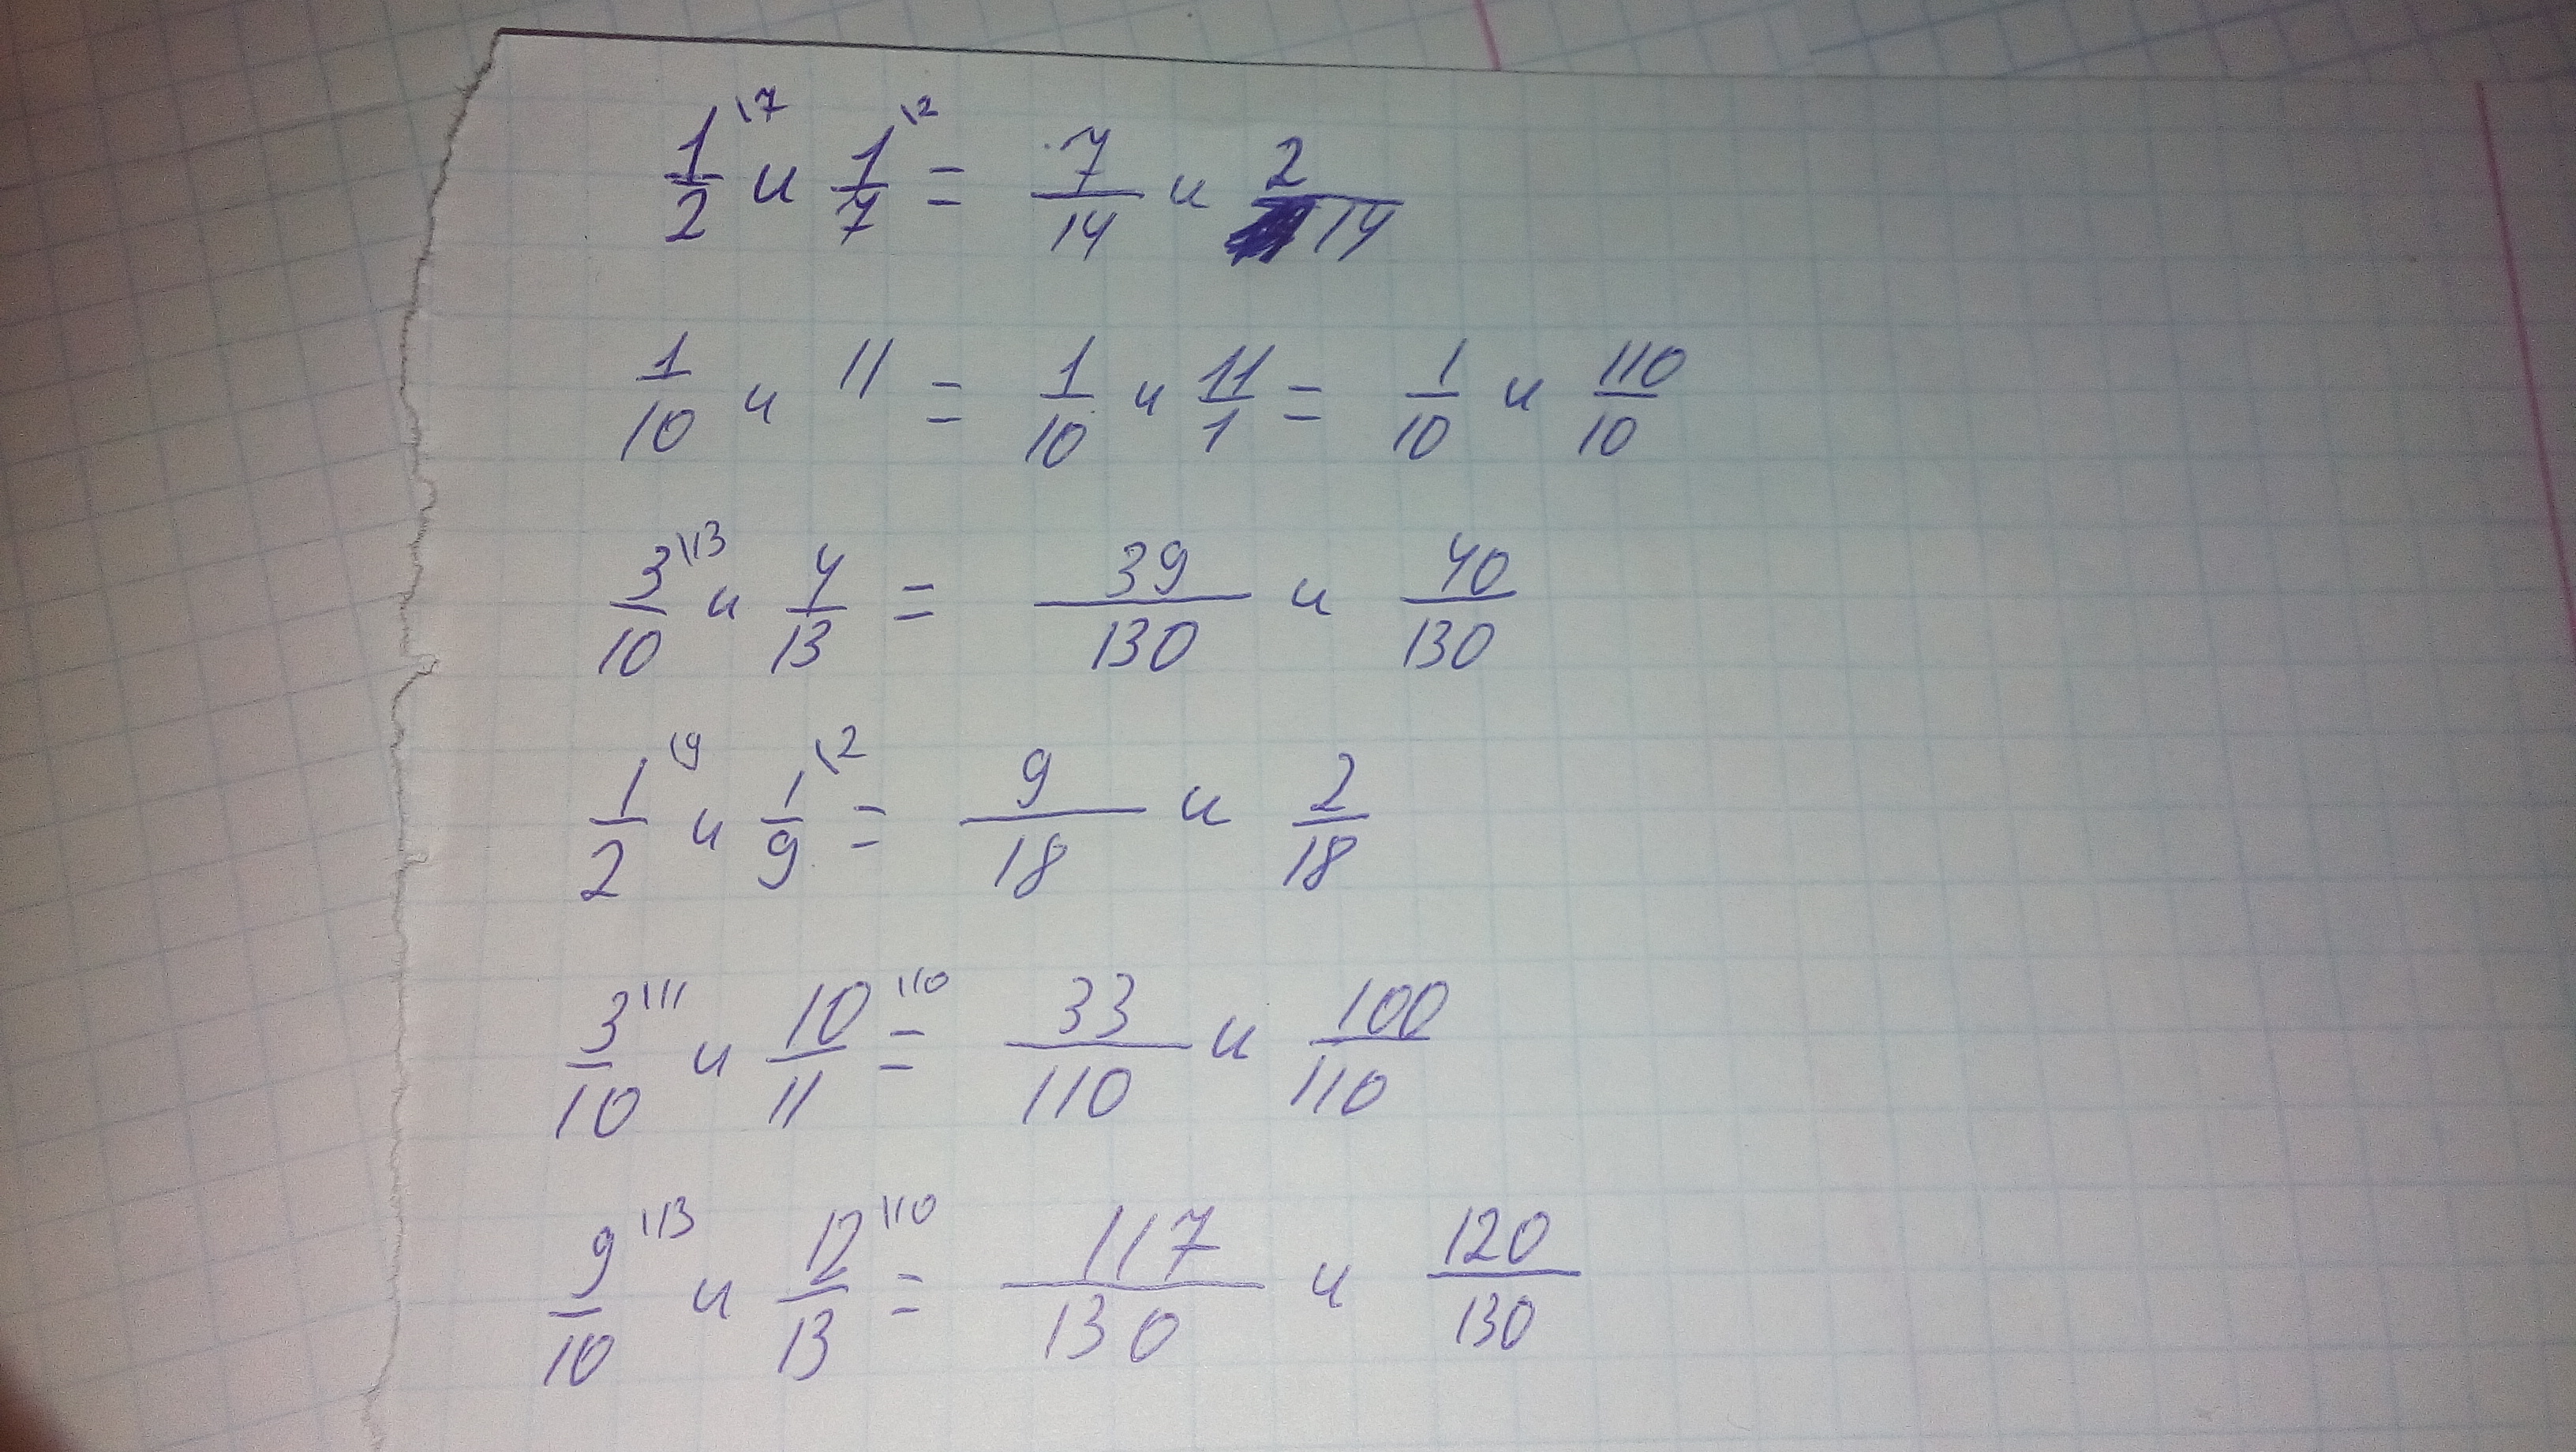 1/2 \7 и 1/7 \2 = 7/14 и 2/14
1/10 и 11 = 1/10 и 11/1 = 1/10 и 110/10
3/10 \13 и 4/13 = 39/130 и 40/130
1/2 \9 и 1/9 \2 = 9/18 и 2/18
3/10 \11 и 10/11 \10 = 33/110 и 100/110
9/10 \13 и 12/13 \10 = 117/130 и 120/130